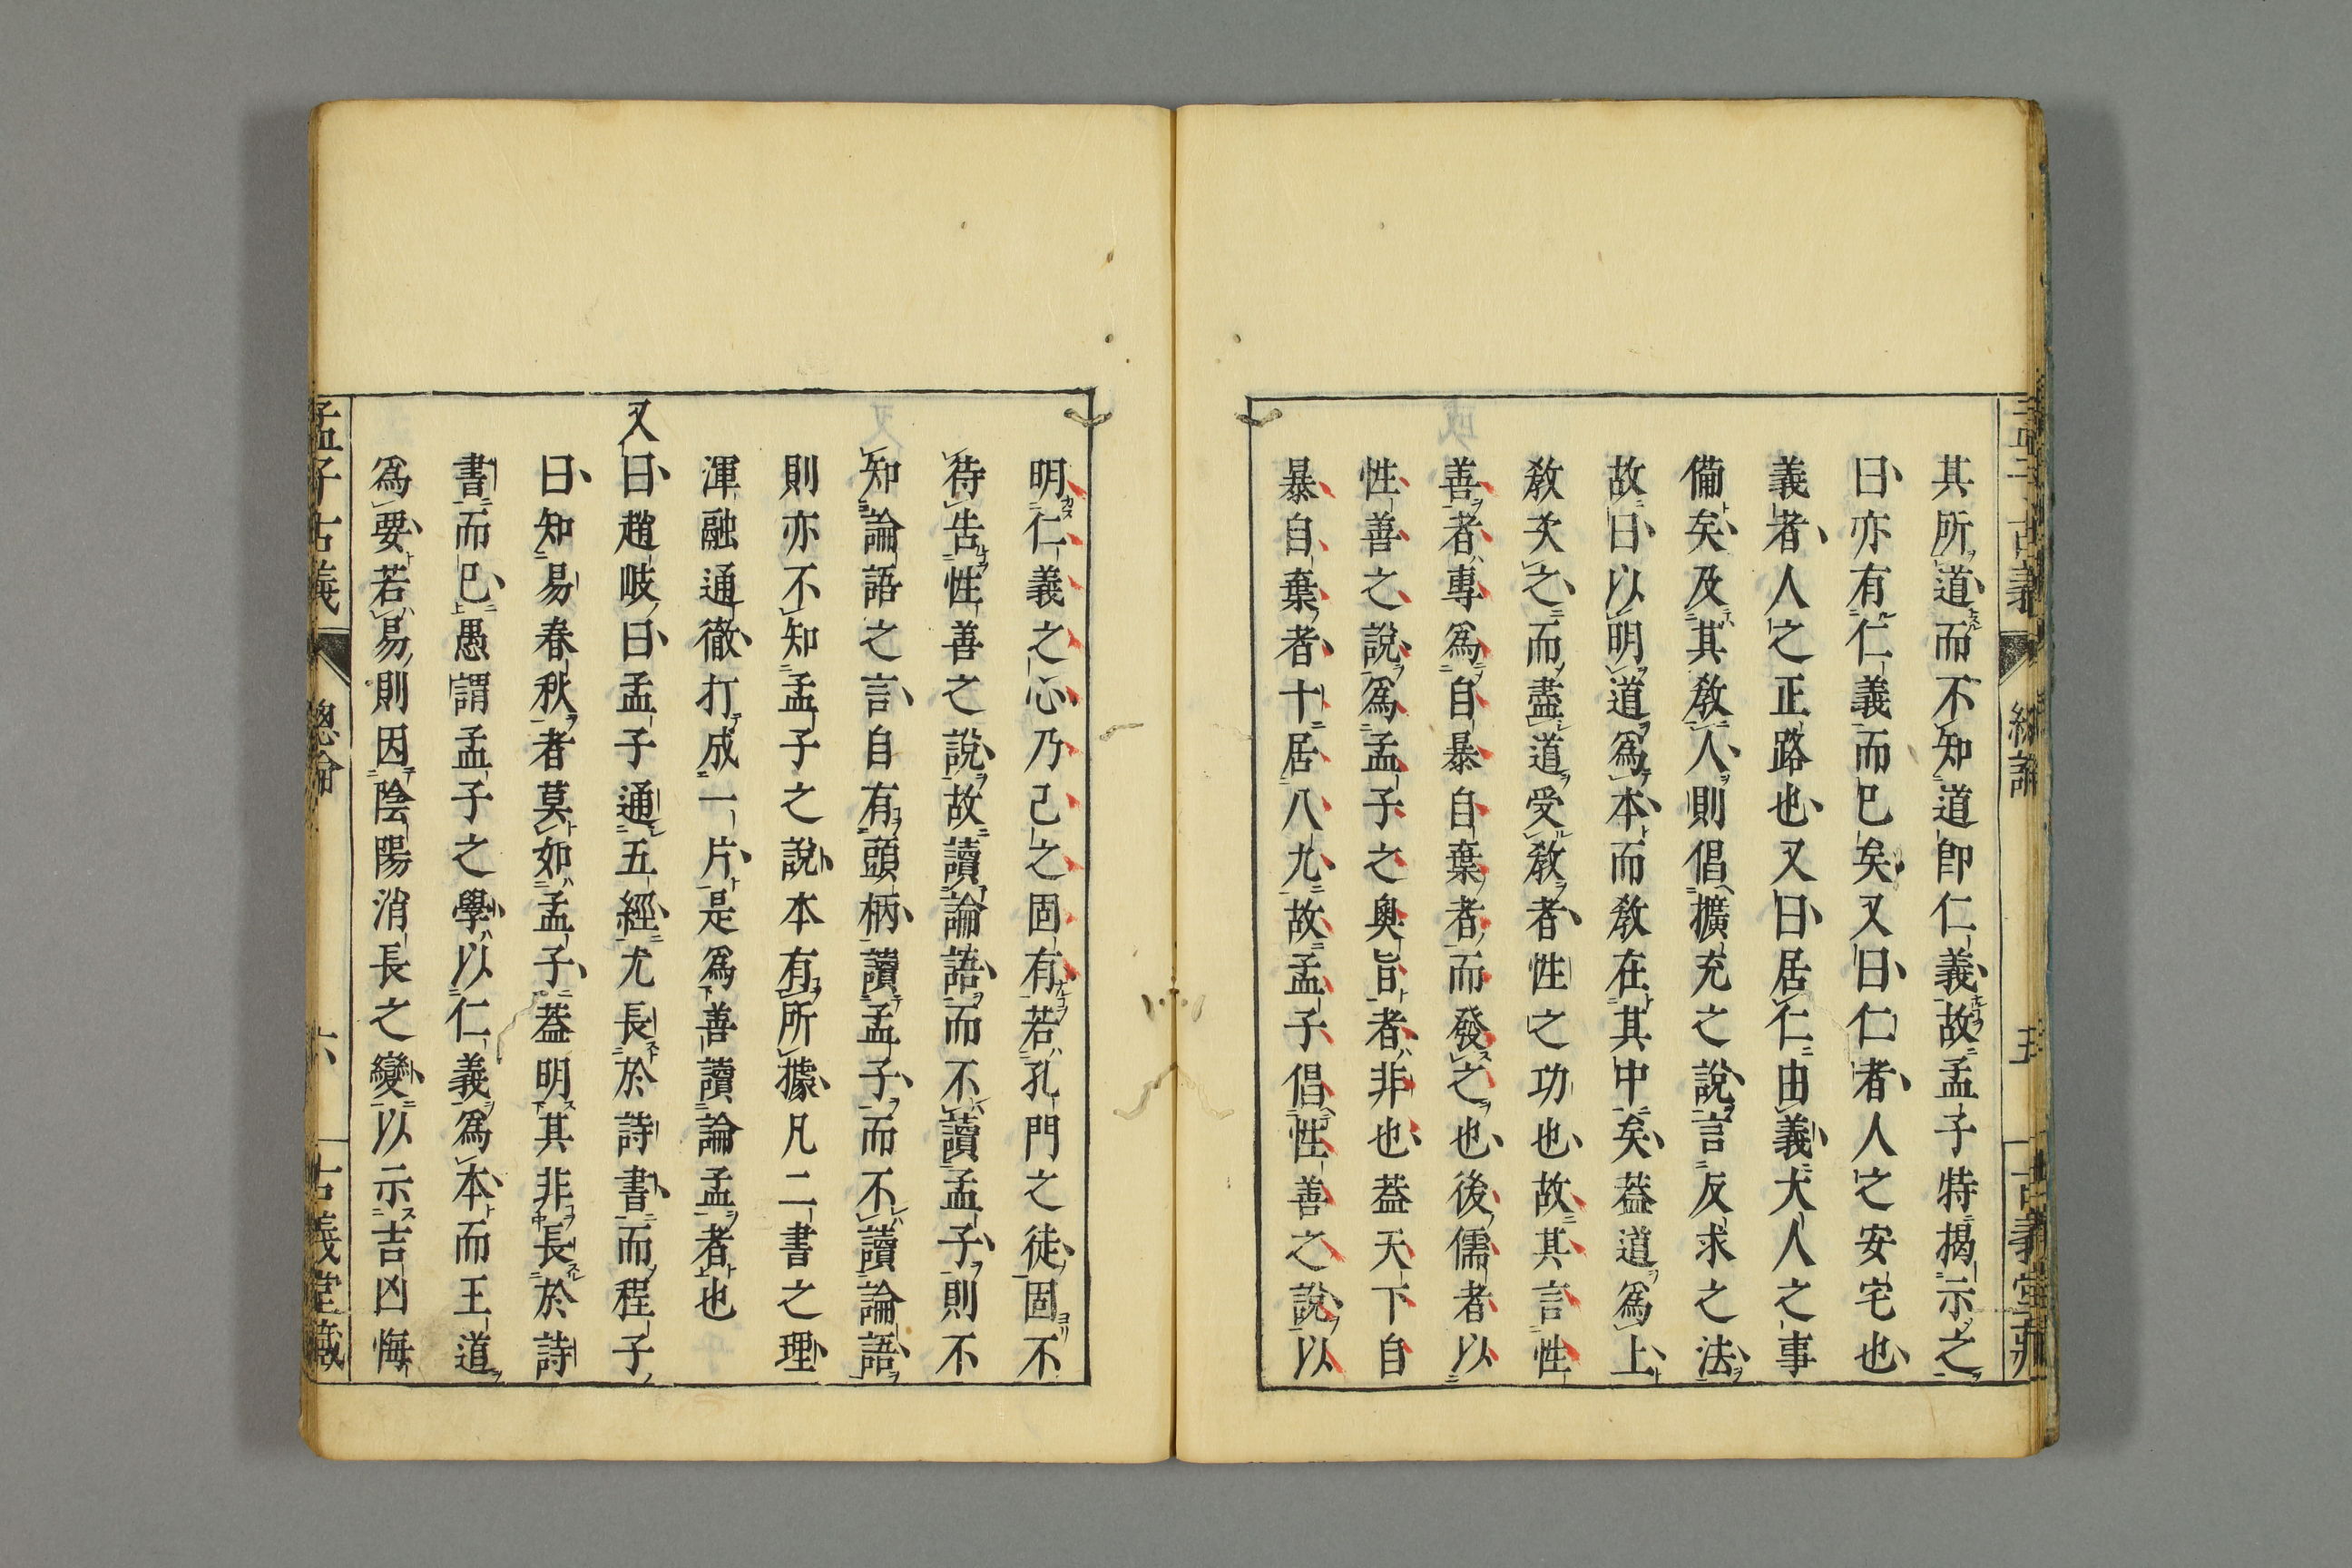 孟子古義 總論 五 古義堂藏
其所道而不知道卽仁義故孟子特揭示之
曰亦有仁義而已矣又曰仁者人之安宅也
義者人之正路也又曰居仁由義大人之事
備矣及其敎人則倡擴充之說言反求之法
故曰以明道爲本而敎在其中矣葢道爲上
敎次之而盡道受敎者性之功也故其言性
善者專爲自暴自棄者而發之也後儒者以
性善之說爲孟子之奧旨者非也葢天下自
暴自棄者十居八九故孟子倡性善之說以
明仁義之心乃己之固有若孔門之徒固不
待告性善之說故讀論語而不讀孟子則不
知論語之言自有頭柄讀孟子而不讀論語
則亦不知孟子之說本有所據凡二書之理
渾融通徹打成一片是爲善讀論孟者也
又曰趙岐曰孟子通五經尤長於詩書而程子
曰知易春秋者莫如孟子葢明其非長於詩
書而已愚謂孟子之學以仁義爲本而王道
爲要若易則因陰陽消長之變以示吉凶悔
孟子古義 總論 六 古義堂藏